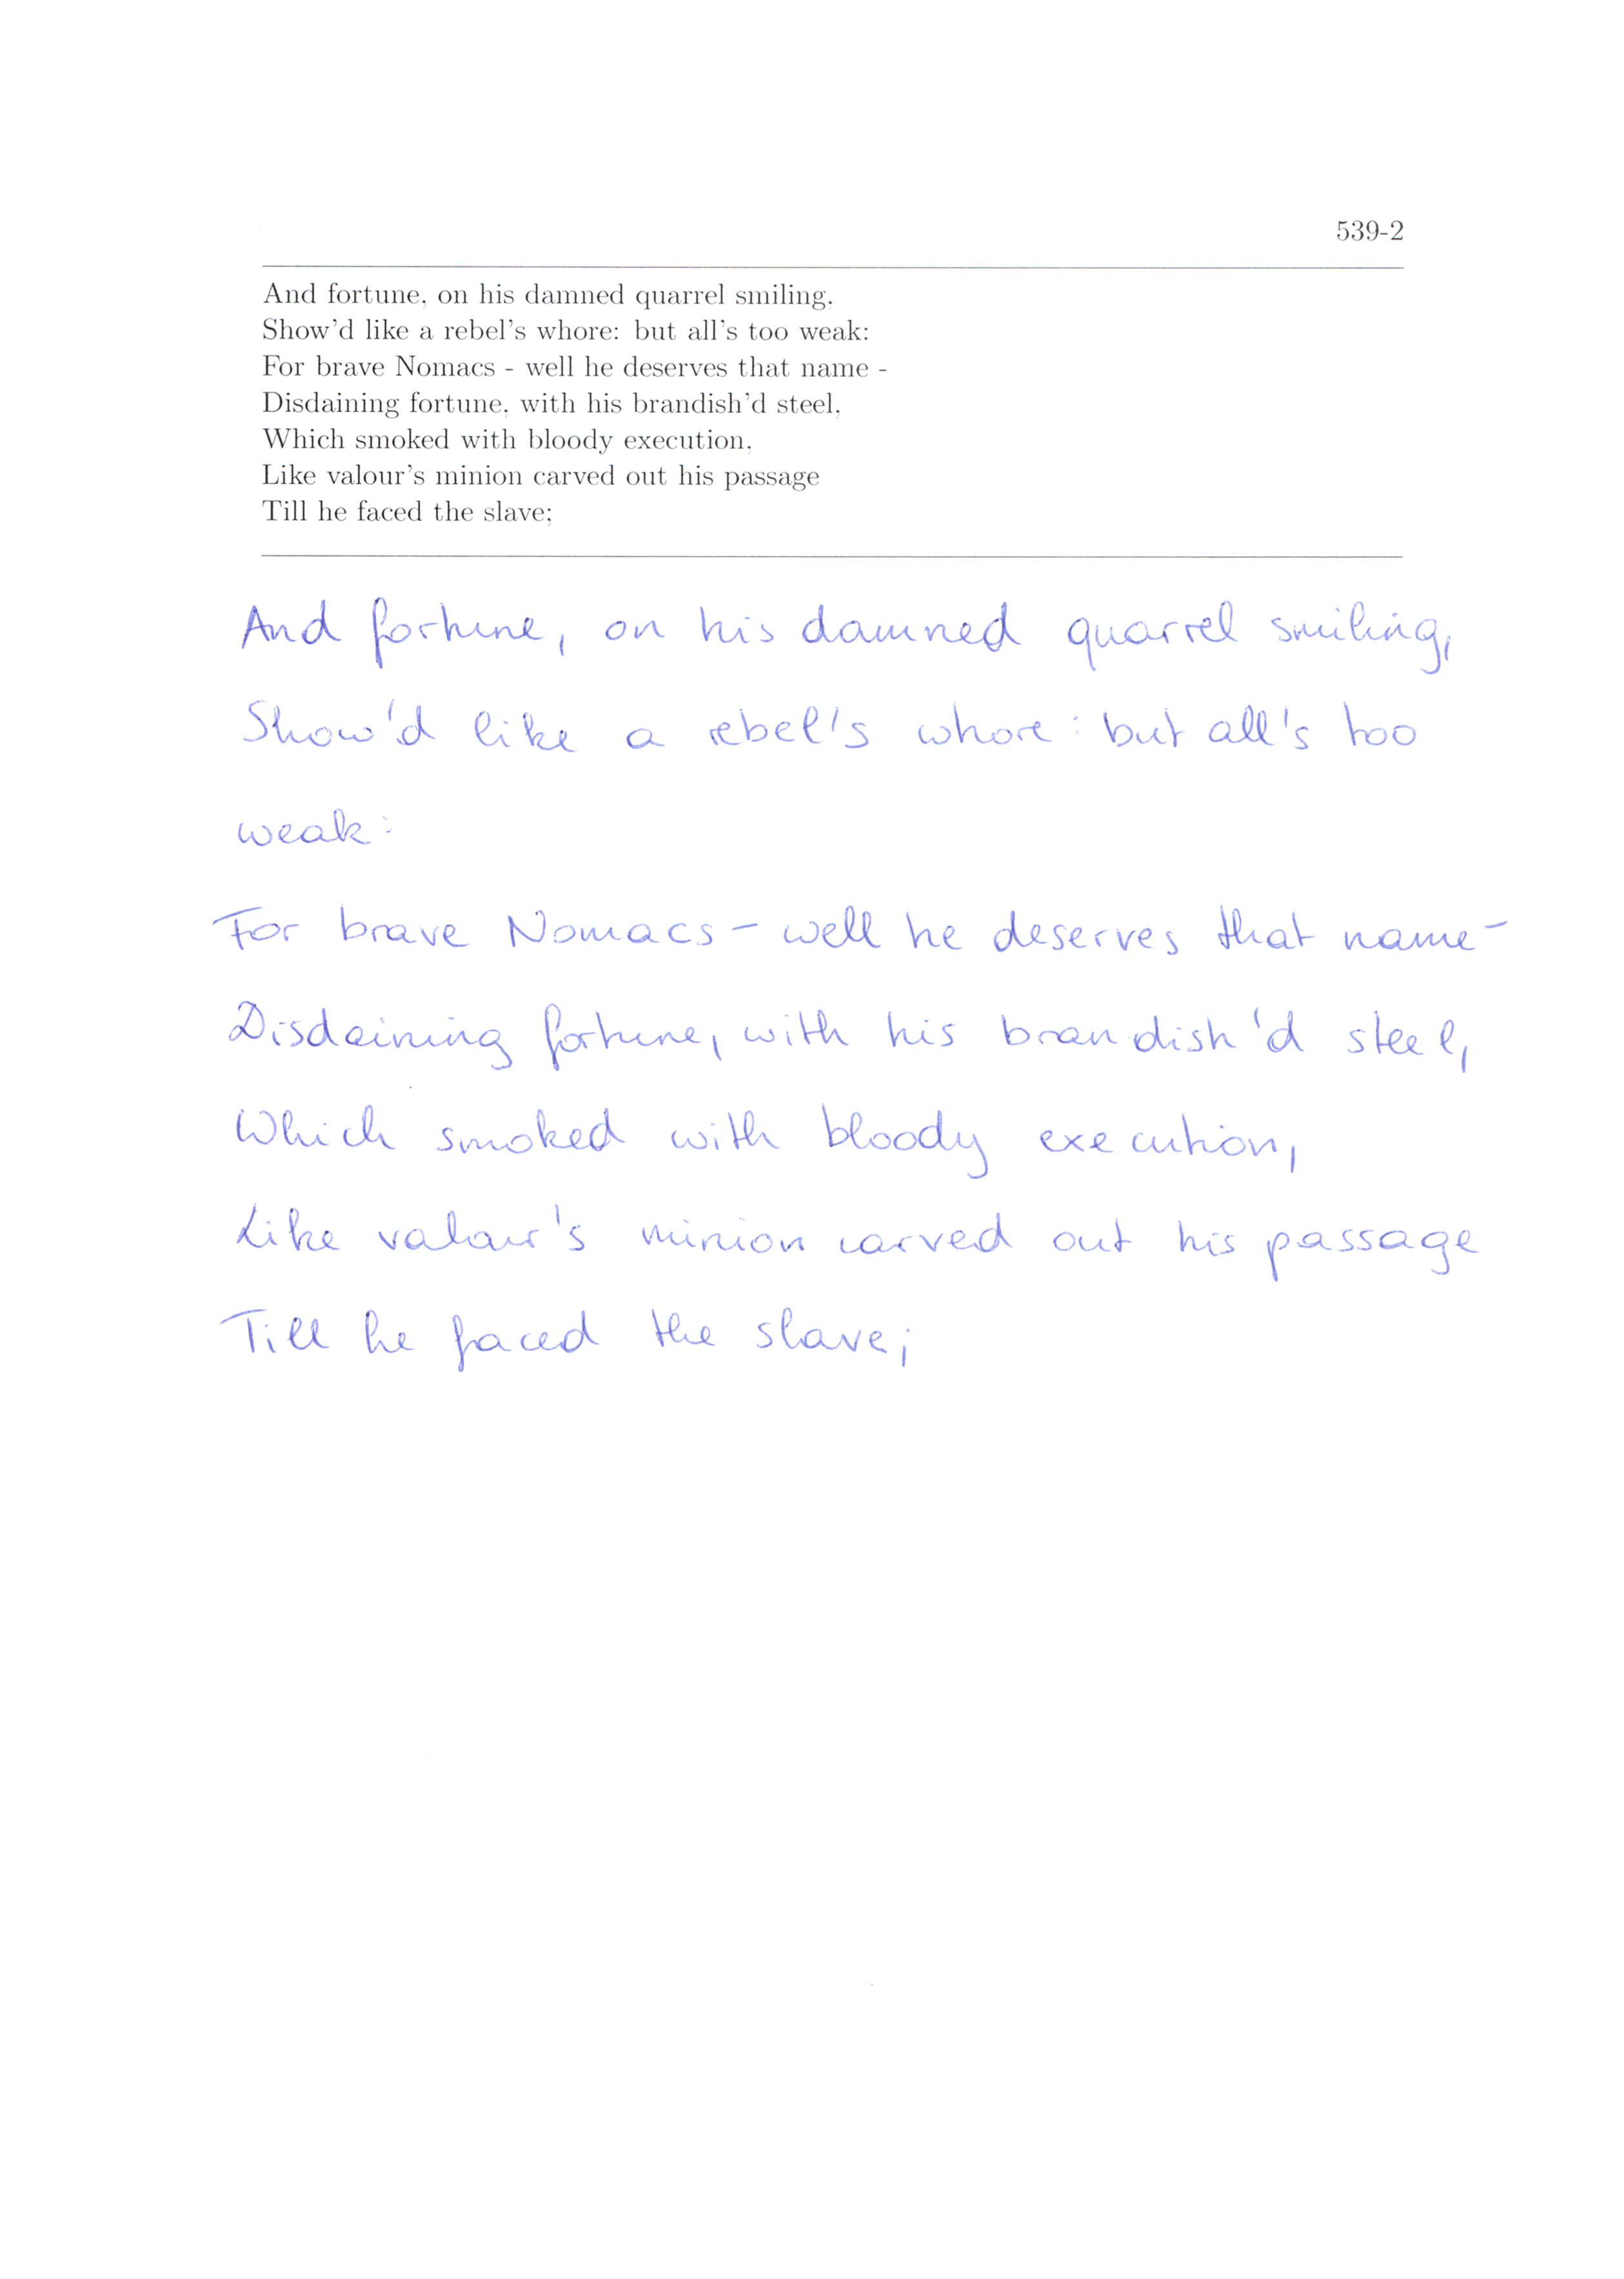 539-2
And fortune, on his damned quarrel smiling,
Show'd like a rebel's whore: but all's too weak:
For brave Nomacs - well he deserves that name -
Disdaining fortune, with his brandish'd steel,
Which smoked with bloody execution,
Like valour's minion carved out his passage
Till he faced the slave;
And fortune, on his damned quarrel smiling,
Show'd like a rebel's whore: but all's too
weak:
For brave Nomacs - well he deserves that name -
Disdaining fortune, with his brandish'd steel,
Which smoked with bloody execution,
Like valour's minion carved out his passage
Till he faced the slave;